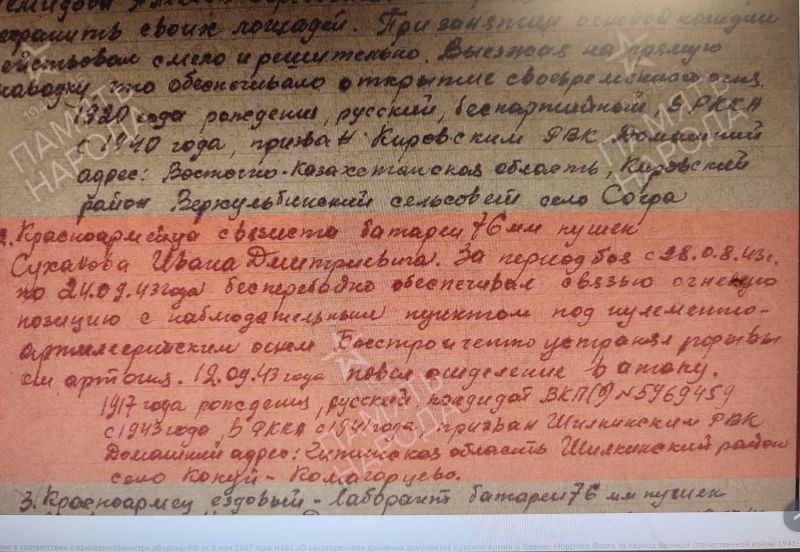 хранить своих лошадей. При занятии огневой позиции
действовал смело и решительно. Выезжая на прямую
наводку, что обеспечивало открытие своевременного огня.
1920 года рождения, русский, беспартийный, В РККА
с 1940 года, призван Кировским РВК Домашний
адрес: Восточно-Казахстанская область, Кировский
район Верхульбинский сельсовет село Согра
2. Красноармейца связиста батареи 76 мм пушек
Суханова Ивана Дмитриевича. За период боя с 28.0.8.43г.
по 24.09.43 года бесперебойно обеспечивал связью огневую
позицию с наблюдательным пунктом под пулеметно-
артиллерийским огнем Быстро и четко устранял порывы
от артогня. 12.09.43 года повел отделение в атаку.
1917 года рождения, русский, кандидат ВКП(б) №5969459
с 1943 года, В РККА с 1941 года, призван Шилкинским РВК
Домашний адрес: Читинская область Шилкинский район
село Кокуй-Комагорцево.
3. Красноармеец ездовый - лаборант батареи 76 мм пушек
ПАМЯТЬ НАРОДА
ПАМЯТЬ НАРОДА
ПАМЯТЬ НАРОДА
в соответствии с приказом Министра обороны РФ от 8 мая 2007 года N181 «О рассекречивании архивных документов Красной Армии и Военно-Морского Флота за период Великой Отечественной войны 1941-